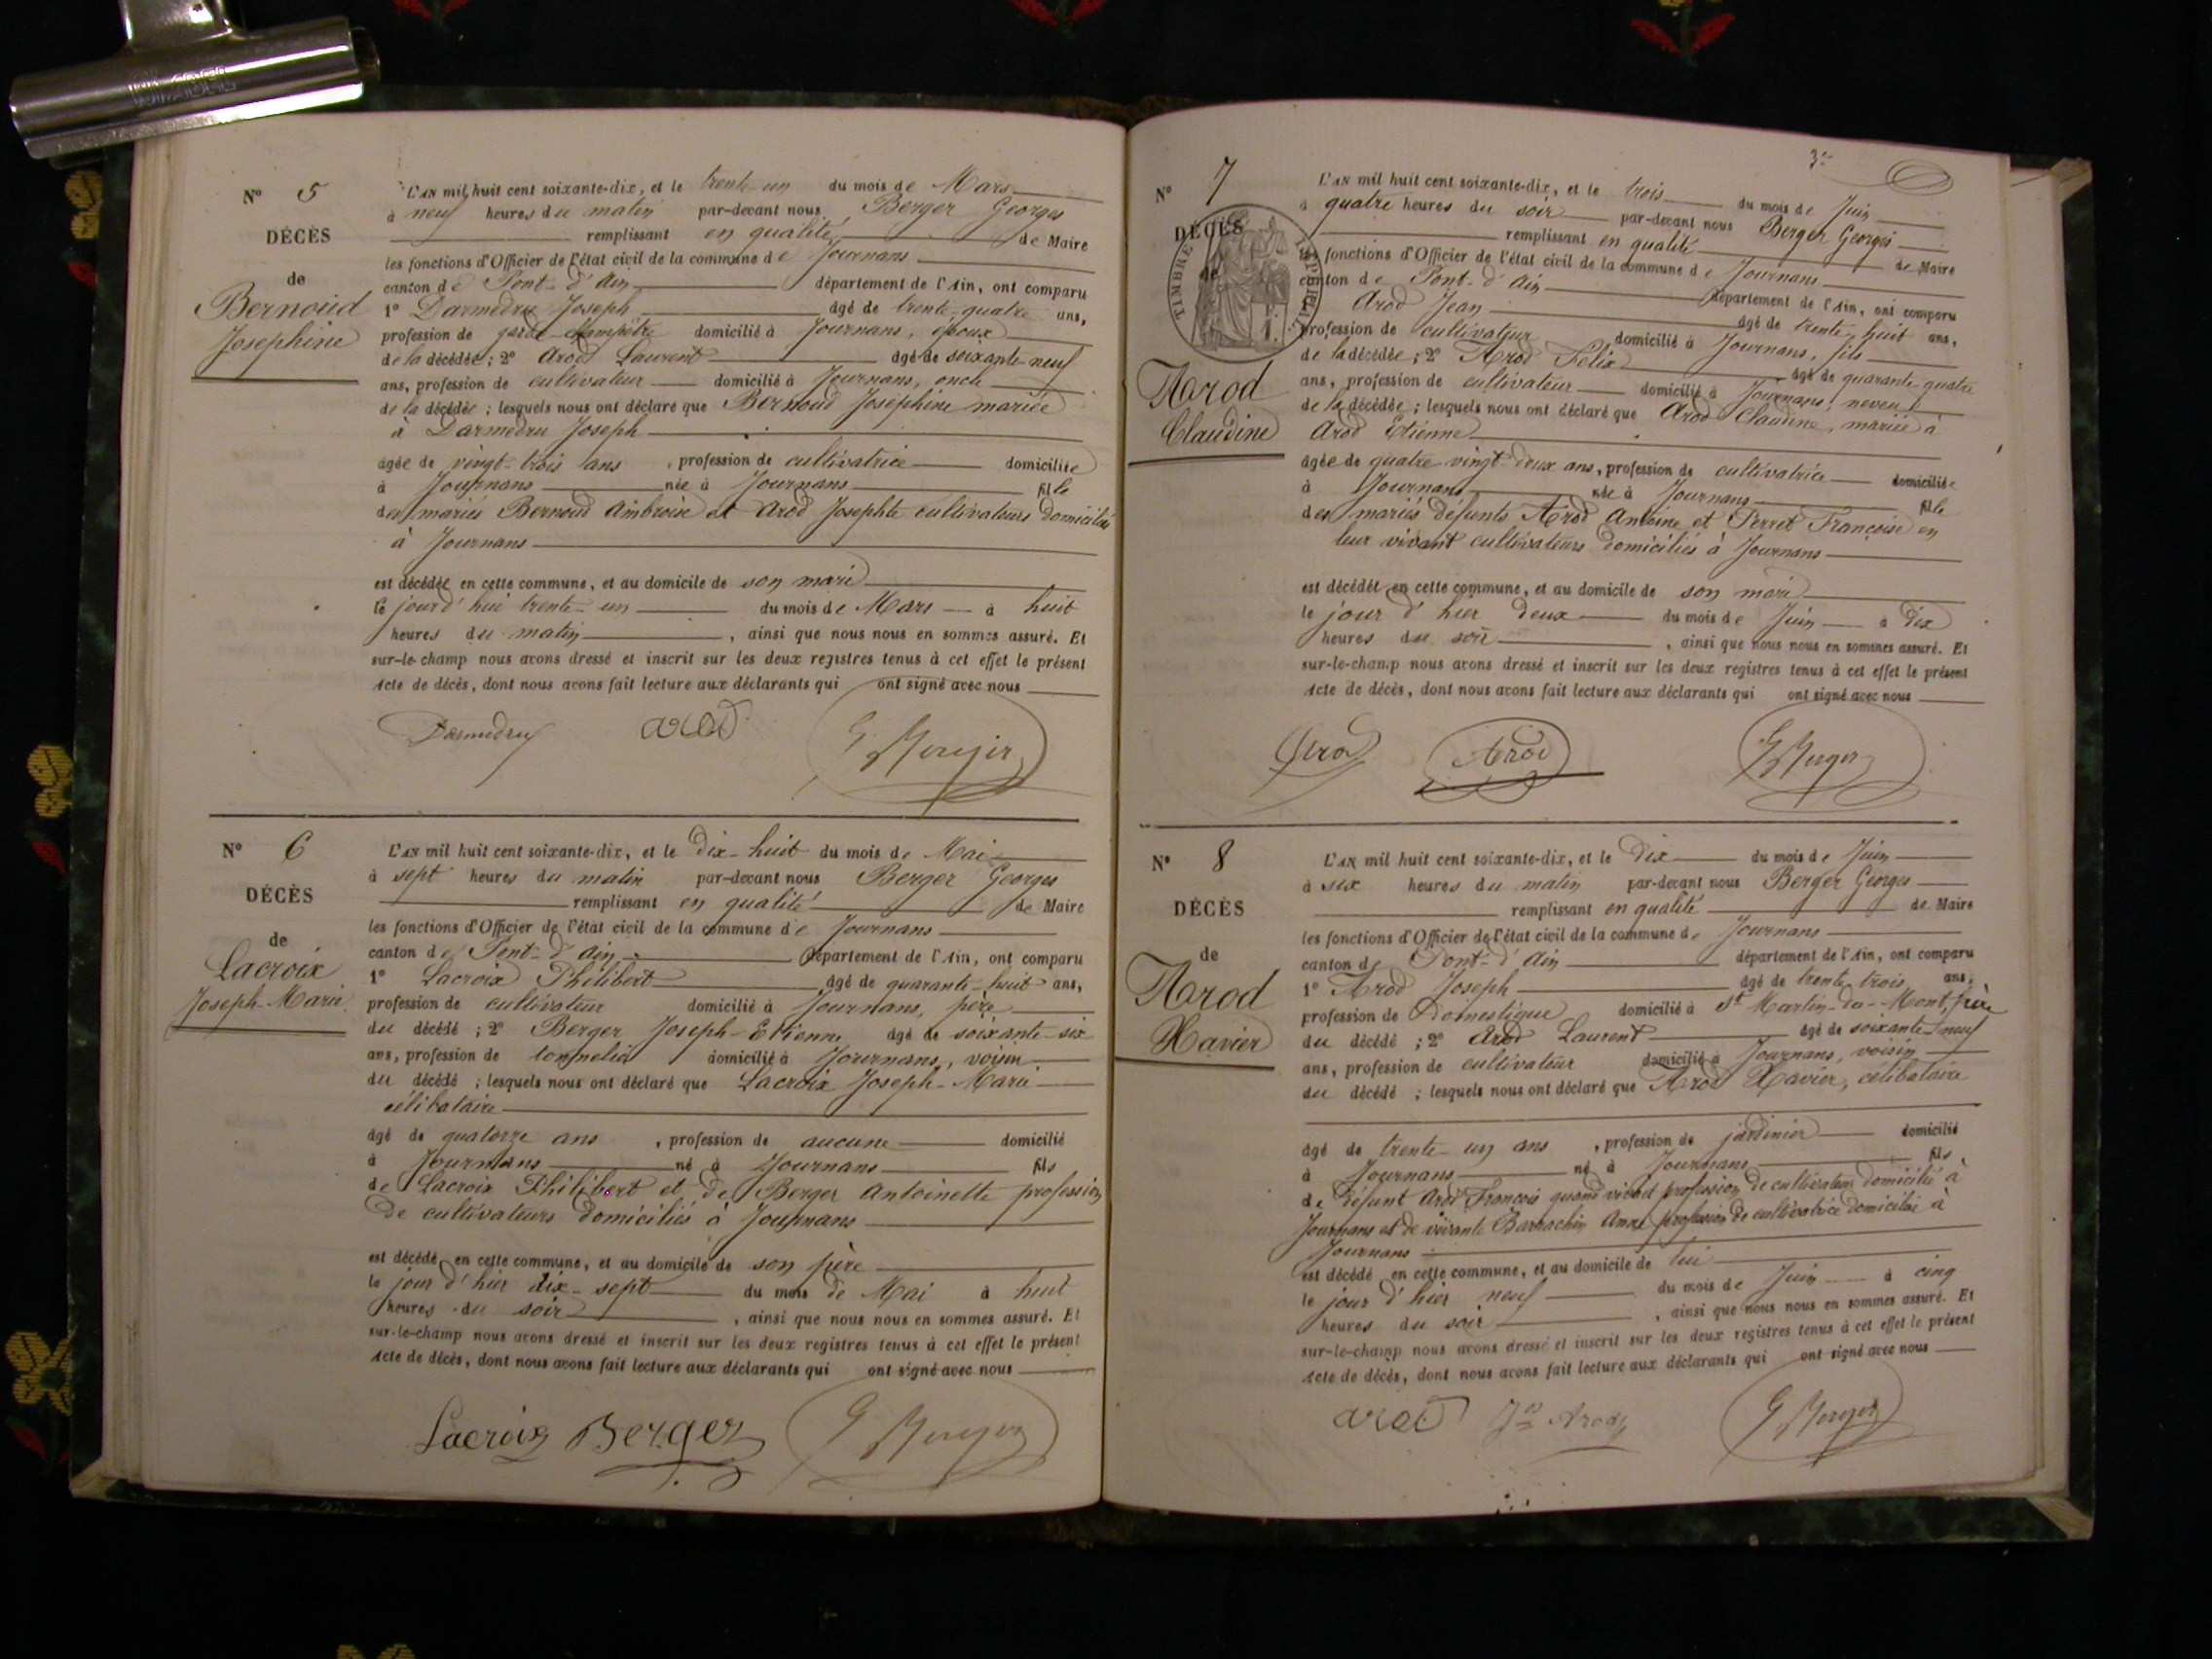 N° 5
DÉCÈS
de
Bernoud
Josephine
L'AN mil huit cent soixante-dix, et le trente-un du mois de Mars
à neuf heures du matin par-devant nous Berger Georges
remplissant en qualité de Maire
les fonctions d'Officier de l'état civil de la commune de Journans
canton de Pont-d'Ain département de l'Ain, ont comparu
1° Darmedru Joseph âgé de trente-quatre ans,
profession de garde-champêtre domicilié à Journans, époux
de la décédée; 2° Arod Laurent âgé de soixante neuf
ans, profession de cultivateur domicilié à Journans, oncle
de la décédée; lesquels nous ont déclaré que Bernoud Joséphine mariée
à Darmedru Joseph
âgée de vingt-trois ans, profession de cultivatrice domiciliée
à Journans née à Journans fille
des mariés Bernoud Ambroise et Arod Josephte cultivateurs domiciliés
à Journans
est décédée en cette commune, et au domicile de son mari
le jourd'hui trente-un du mois de Mars à huit
heures du matin, ainsi que nous nous en sommes assuré. Et
sur-le-champ nous avons dressé et inscrit sur les deux registres tenus à cet effet le présent
Acte de décès, dont nous avons fait lecture aux déclarants qui ont signé avec nous
Darmedru arod G Berger
N° 6
DÉCÈS
de
Lacroix
Joseph-Marie
L'AN mil huit cent soixante-dix, et le dix-huit du mois de Mai
à sept heures du matin par-devant nous Berger Georges
remplissant en qualité de Maire
les fonctions d'Officier de l'état civil de la commune de Journans
canton de Pont-d'Ain département de l'Ain, ont comparu
1° Lacroix Philibert âgé de quarante-huit ans,
profession de cultivateur domicilié à Journans, père
du décédé; 2° Berger Joseph-Etienne âgé de soixante-six
ans, profession de tonnelier domicilié à Journans, voisin
du décédé; lesquels nous ont déclaré que Lacroix Joseph-Marie
célibataire
âgé de quatorze ans, profession de aucune domicilié
à Journans né à Journans fils
de Lacroix Philibert et de Berger Antoinette profession
de cultivateurs domiciliés à Journans
est décédé en cette commune, et au domicile de son père
le jour d'hier dix-sept du mois de Mai à huit
heures du soir, ainsi que nous nous en sommes assuré. Et
sur-le-champ nous avons dressé et inscrit sur les deux registres tenus à cet effet le présent
Acte de décès, dont nous avons fait lecture aux déclarants qui ont signé avec nous
Lacroix Berger G Berger
3e
N° 7
DÉCÈS
de
TIMBRE IMPERIAL
Arod
Claudine
L'AN mil huit cent soixante-dix, et le trois du mois de Juin
à quatre heures du soir par-devant nous Berger Georges
remplissant en qualité de Maire
les fonctions d'Officier de l'état civil de la commune de Journans
canton de Pont-d'Ain département de l'Ain, ont comparu
1° Arod Jean âgé de trente-huit ans,
profession de cultivateur domicilié à Journans, fils
de la décédée; 2° Arod Félix âgé de quarante-quatre
ans, profession de cultivateur domicilié à Journans, neveu
de la décédée; lesquels nous ont déclaré que Arod Claudine, mariée à
Arod Etienne
âgée de quatre vingt-deux ans, profession de cultivatrice domiciliée
à Journans née à Journans fille
des mariés défunts Arod Antoine et Perret Françoise en
leur vivant cultivateurs domiciliés à Journans
est décédée en cette commune, et au domicile de son mari
le jour d'hier deux du mois de Juin à dix
heures du soir, ainsi que nous nous en sommes assuré. Et
sur-le-champ nous avons dressé et inscrit sur les deux registres tenus à cet effet le présent
Acte de décès, dont nous avons fait lecture aux déclarants qui ont signé avec nous
Arod Arod G Berger
N° 8
DÉCÈS
de
Arod
Xavier
L'AN mil huit cent soixante-dix, et le dix du mois de Juin
à six heures du matin par-devant nous Berger Georges
remplissant en qualité de Maire
les fonctions d'Officier de l'état civil de la commune de Journans
canton de Pont-d'Ain département de l'Ain, ont comparu
1° Arod Joseph âgé de trente trois ans,
profession de domestique domicilié à St Martin-du-Mont, frère
du décédé; 2° Arod Laurent âgé de soixante neuf
ans, profession de cultivateur domicilié à Journans, voisin
du décédé; lesquels nous ont déclaré que Arod Xavier, célibataire
âgé de trente-un ans, profession de jardinier domicilié
à Journans né à Journans fils
de défunt Arod François quand vivait profession de cultivateur domicilié à
Journans et de vivante Barrachin Anne profession de cultivatrice domiciliée à
Journans
est décédé en cette commune, et au domicile de lui
le jour d'hier neuf du mois de Juin à cinq
heures du soir, ainsi que nous nous en sommes assuré. Et
sur-le-champ nous avons dressé et inscrit sur les deux registres tenus à cet effet le présent
Acte de décès, dont nous avons fait lecture aux déclarants qui ont signé avec nous
arod Jh Arod G Berger